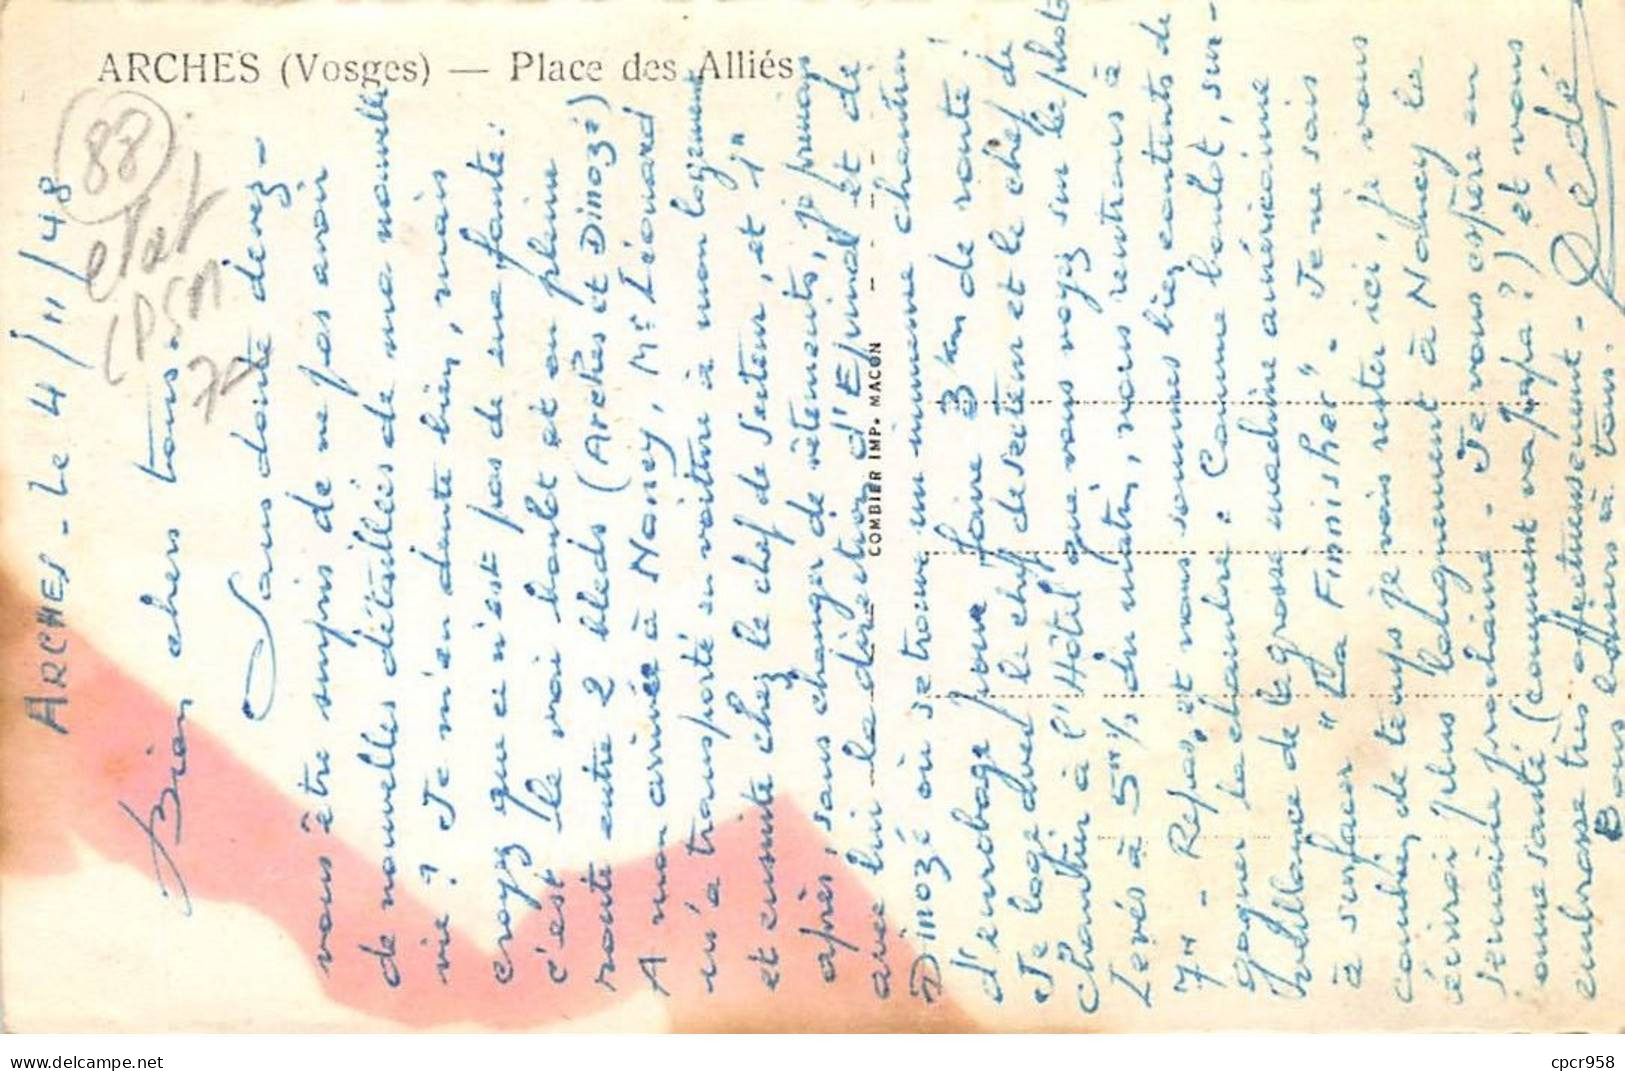 ARCHES (Vosges) — Place des Alliés
88
état
CPSM
70
COMBIER IMP. MACON
ARCHES - Le 4/11/48
Bien chers tous.
Sans doute devez-
vous être surpris de ne pas avoir
de nouvelles détaillées de ma nouvelle
vie ? Je m'en doute bien, mais
croyez que ce n'est pas de ma faute :
c'est le vrai boulot et en pleine
route entre 2 bleds (Arches et Dinozé)
A mon arrivée à Nancy, Mr Léonard
m'a transporté en voiture à mon logement
et ensuite chez le chef de secteur, et 1h
après, sans changer de vêtements, je prenais
avec lui la direction d'Epinal et de
Dinozé où se trouve un immense chantier
d'enrobage pour faire 3 km de route
Je loge avec le chef de secteur et le chef de
chantier à l'Hôtel que vous voyez sur la photo
Levés à 5h½ du matin, nous rentrons à
7h - Repas, et nous sommes bien contents de
gagner la chambre. Comme boulot, sur-
veillance de la grosse machine américaine
à surfacer "La Finisher" - Je ne sais
combien de temps je vais rester ici, je vous
écrirai plus longuement à Nancy la
semaine prochaine - Je vous espère en
bonne santé (comment va papa ?) et vous
embrasse très affectueusement -
Bons baisers à tous.
Dédé
cpcr958